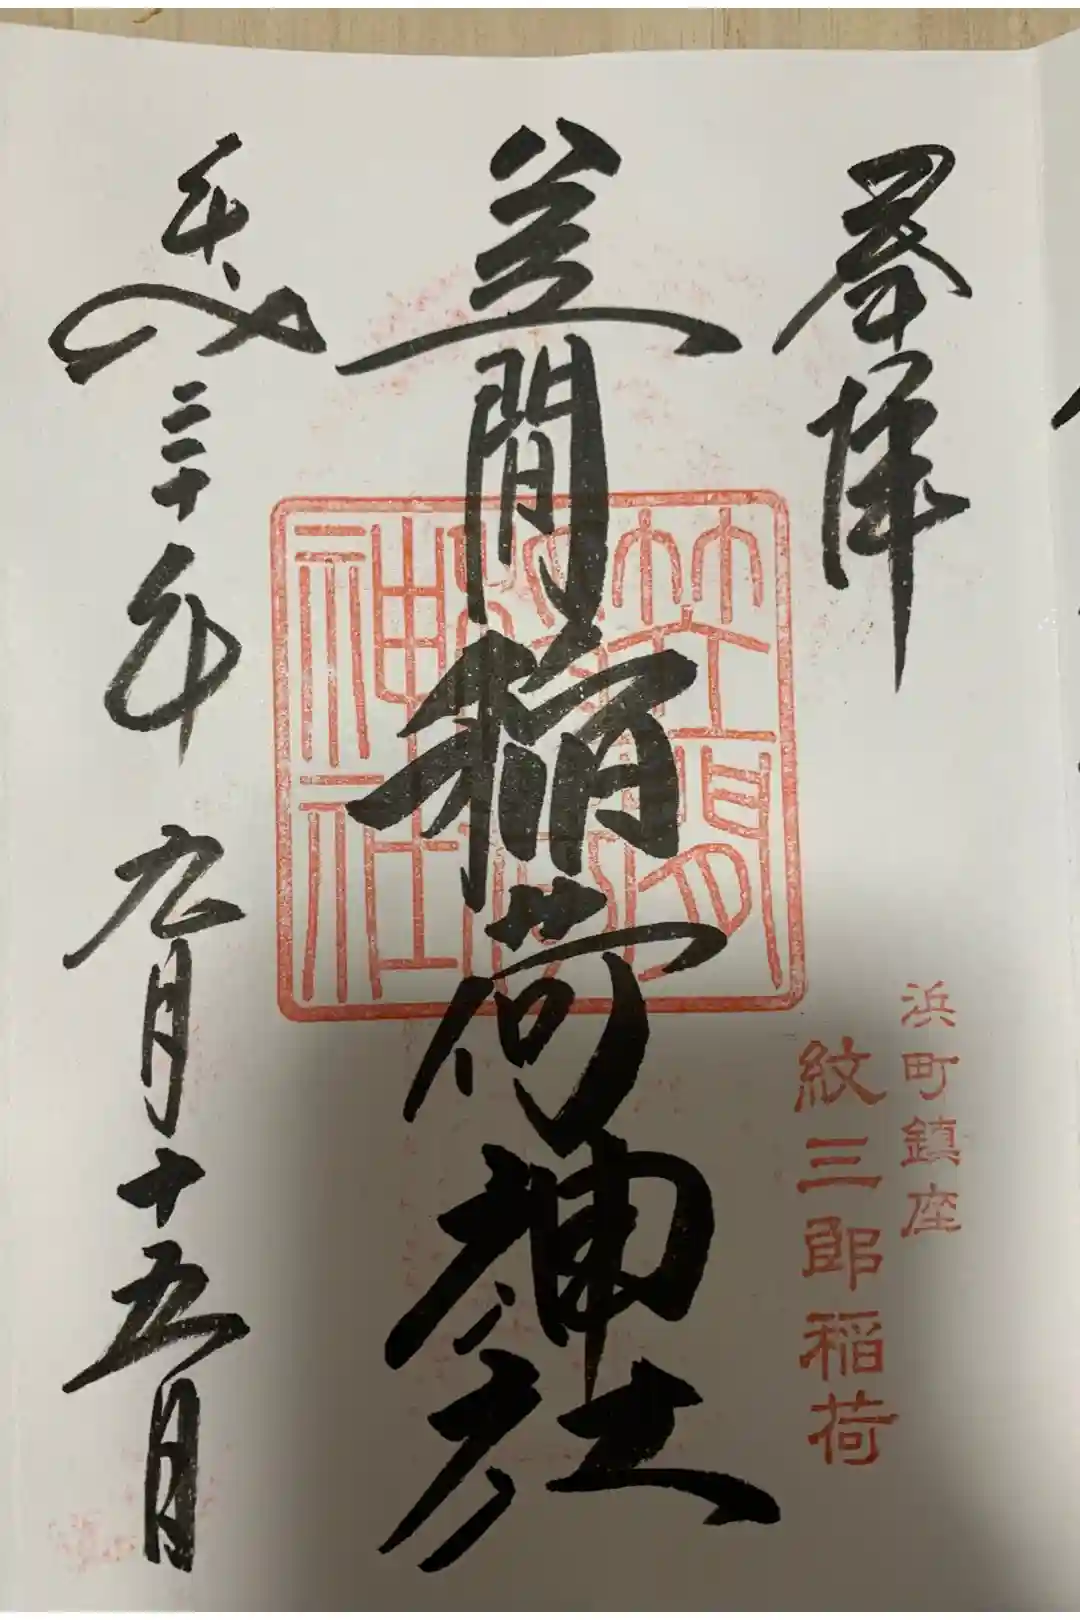 奉拝
浜町鎮座
紋三郎稲荷
笠間稲荷神社
笠間稲荷神社
平成三十年九月十五日